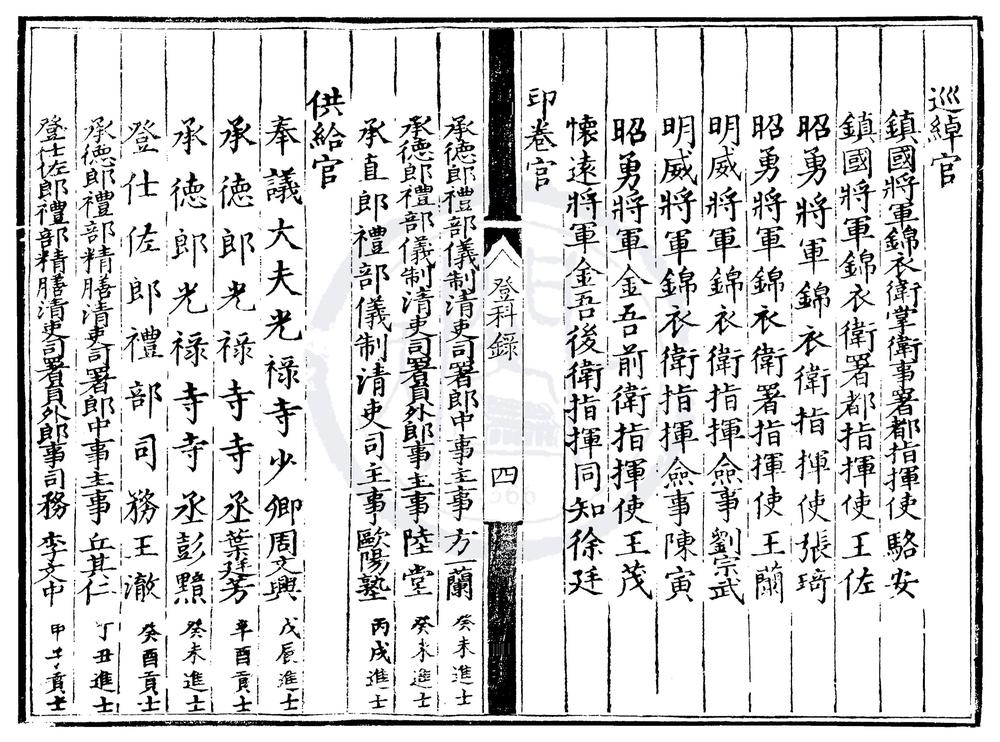 巡綽官
鎮國將軍錦衣衛掌衛事署都指揮使駱安
鎮國將軍錦衣衛署都指揮使王佐
昭勇將軍錦衣衛指揮使張琦
昭勇將軍錦衣衛署指揮使王蘭
明威將軍錦衣衛指揮僉事劉宗武
明威將軍錦衣衛指揮僉事陳寅
昭勇將軍金吾前衛指揮使王茂
懷遠將軍金吾後衛指揮同知徐廷
印卷官
登科錄
四
承德郎禮部儀制清吏司署郎中事主事方一蘭癸未進士
承德郎禮部儀制清吏司署員外郎事主事陸堂癸未進士
承直郎禮部儀制清吏司主事歐陽塾丙戌進士
供給官
奉議大夫光祿寺少卿周文興戊辰進士
承德郎光祿寺寺丞葉廷芳辛酉貢士
承德郎光祿寺寺丞彭黯癸未進士
登仕佐郎禮部司務王澈癸酉貢士
承德郎禮部精膳清吏司署郎中事主事丘其仁丁丑進士
登仕佐郎禮部精膳清吏司署員外郎事司務李文中甲子貢士